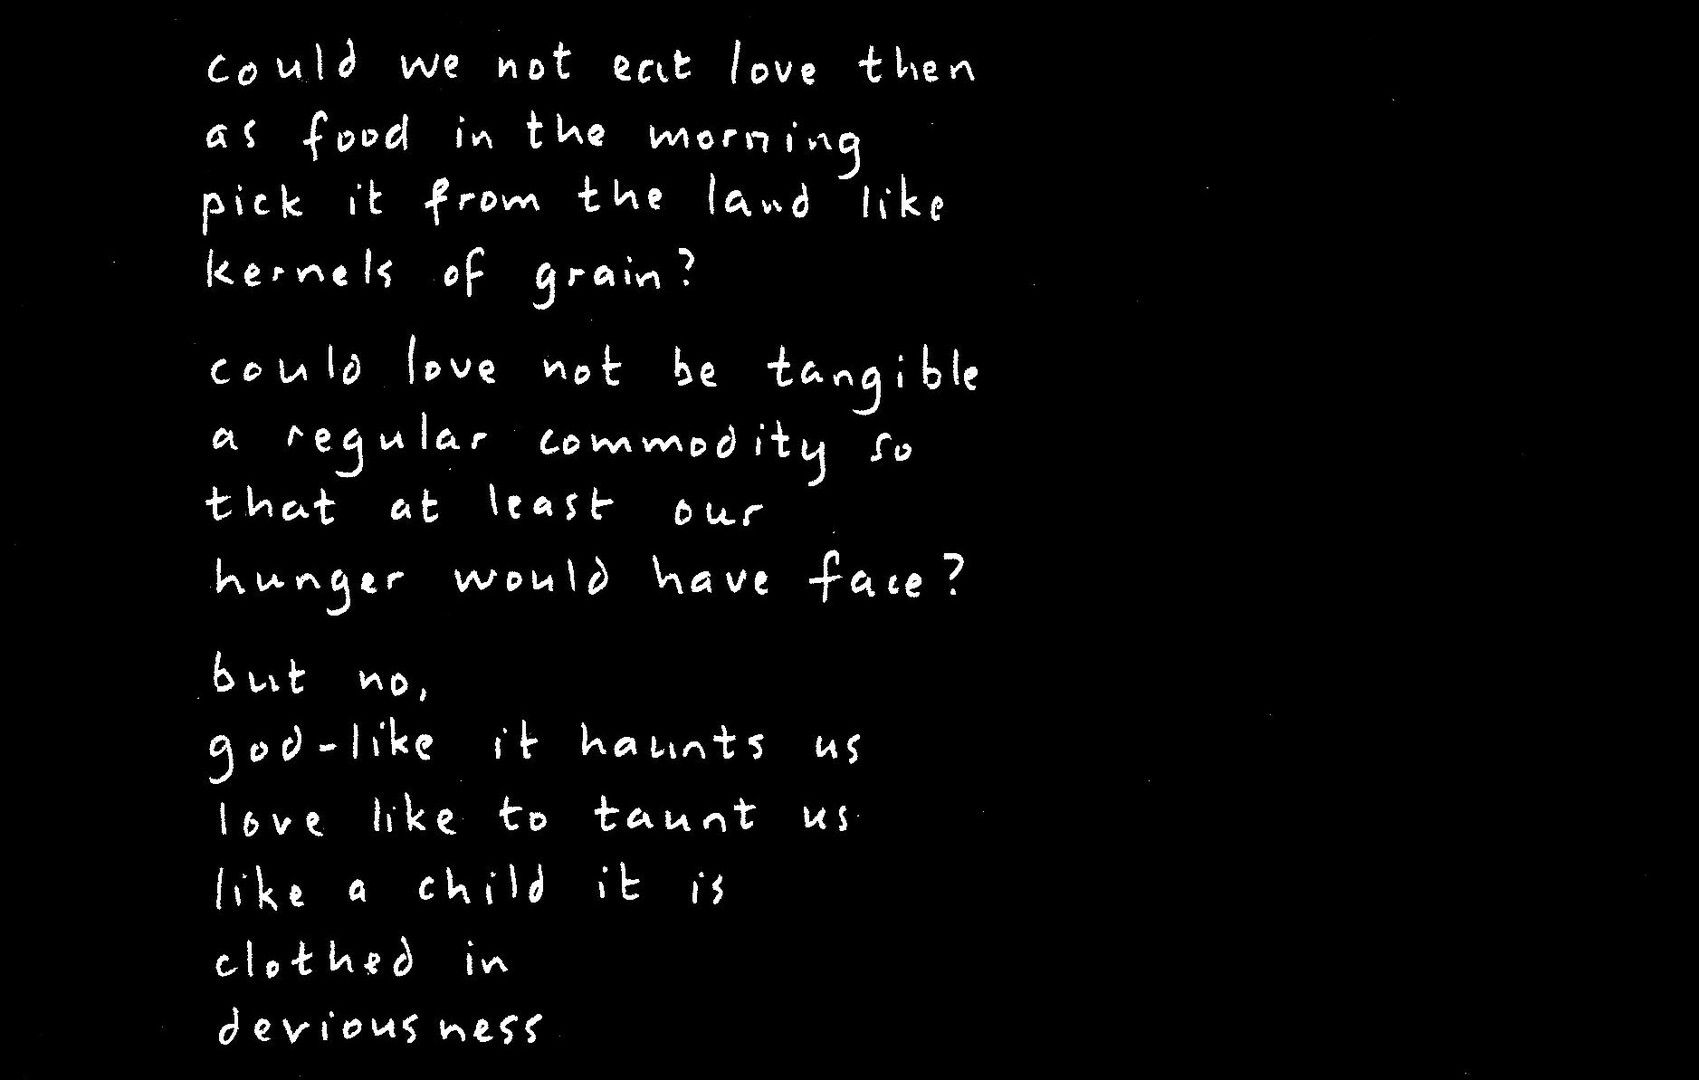 could we not eat love then
as food in the morning
pick it from the land like
kernels of grain?
could love not be tangible
a regular commodity so
that at least our
hunger would have face?
but no,
god-like it haunts us
love like to taunt us
like a child it is
clothed in
deviousness